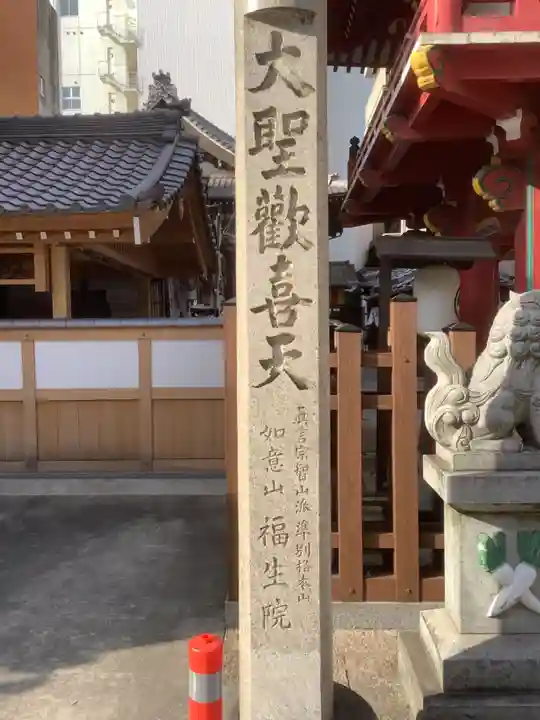 大聖歡喜天
真言宗智山派準別格本山
如意山 福生院